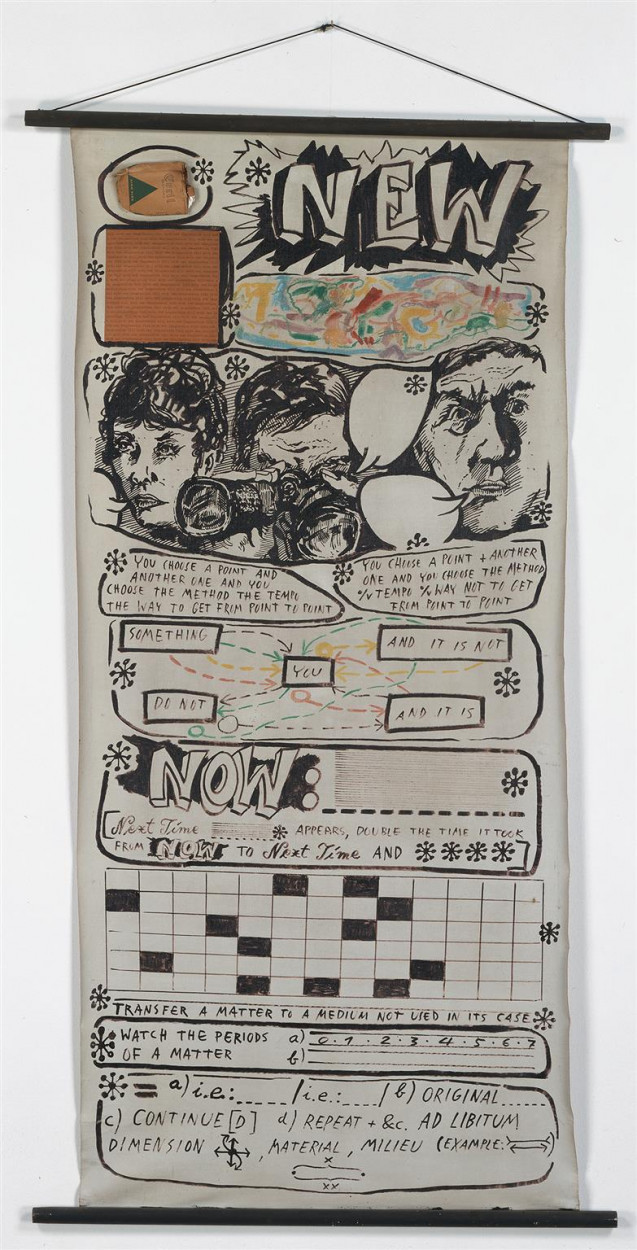 NEW
YOU CHOOSE A POINT AND
ANOTHER ONE AND YOU
CHOOSE THE METHOD THE TEMPO
THE WAY TO GET FROM POINT TO POINT
YOU CHOOSE A POINT + ANOTHER
ONE AND YOU CHOOSE THE METHOD
%TEMPO %WAY NOT TO GET
FROM POINT TO POINT
SOMETHING
AND IT IS NOT
YOU
DO NOT
AND IT IS
NOW:
Next Time APPEARS, DOUBLE THE TIME IT TOOK
FROM NOW TO Next Time AND
TRANSFER A MATTER TO A MEDIUM NOT USED IN ITS CASE
WATCH THE PERIODS a) 0 · 1 · 2 · 3 · 4 · 5 · 6 · 7
OF A MATTER b)
= a) i.e.: / i.e.: / b) ORIGINAL
c) CONTINUE [D] d) REPEAT + &c. AD LIBITUM
DIMENSION , MATERIAL, MILIEU (EXAMPLE: )
x
xx